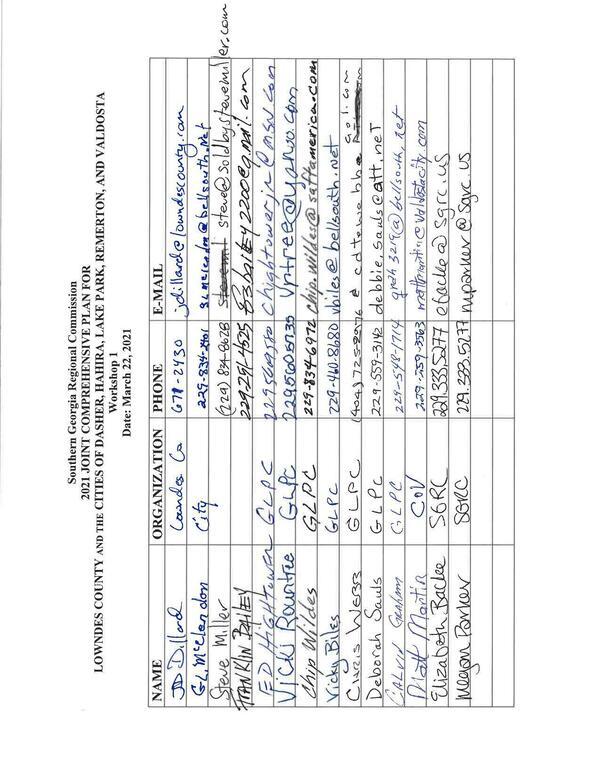 Southern Georgia Regional Commission
2021 JOINT COMPREHENSIVE PLAN FOR
LOWNDES COUNTY AND THE CITIES OF DASHER, HAHIRA, LAKE PARK, REMERTON, AND VALDOSTA
Workshop 1
Date: March 22, 2021
NAME ORGANIZATION PHONE E-MAIL
JD Dillard Lowndes Co 671-2430 jdillard@lowndescounty.com
GL McClendon City 229-834-2401
Steve Miller (229) 834-8628 steve@soldbystevemiller.com
FRANKLIN BAILEY 229-291-4525
ED HIGHTOWER GLPC 2295699580 chightowerjr@msn.com
Vicki Rountree GLPC 2295605735 vrtree@yahoo.com
Chip Wildes GLPC 229-834-6972 chip.wildes@saftamerica.com
Vicky Biles GLPC 229-460-8680 vbiles@bellsouth.net
Chris Webb GLPC (404)
Deborah Sauls GLPC 229-559-3142 debbie.sauls@att.net
CALVIN GRAHAM GLPC 229-548-1714
Matt Martin COV 229-259-3563 mattmartin@valdostacity.com
Elizabeth Backe SGRC 229.333.5277 ebacke@sgrc.us
Megan Parker SGRC 229.333.5277 mparker@sgrc.us